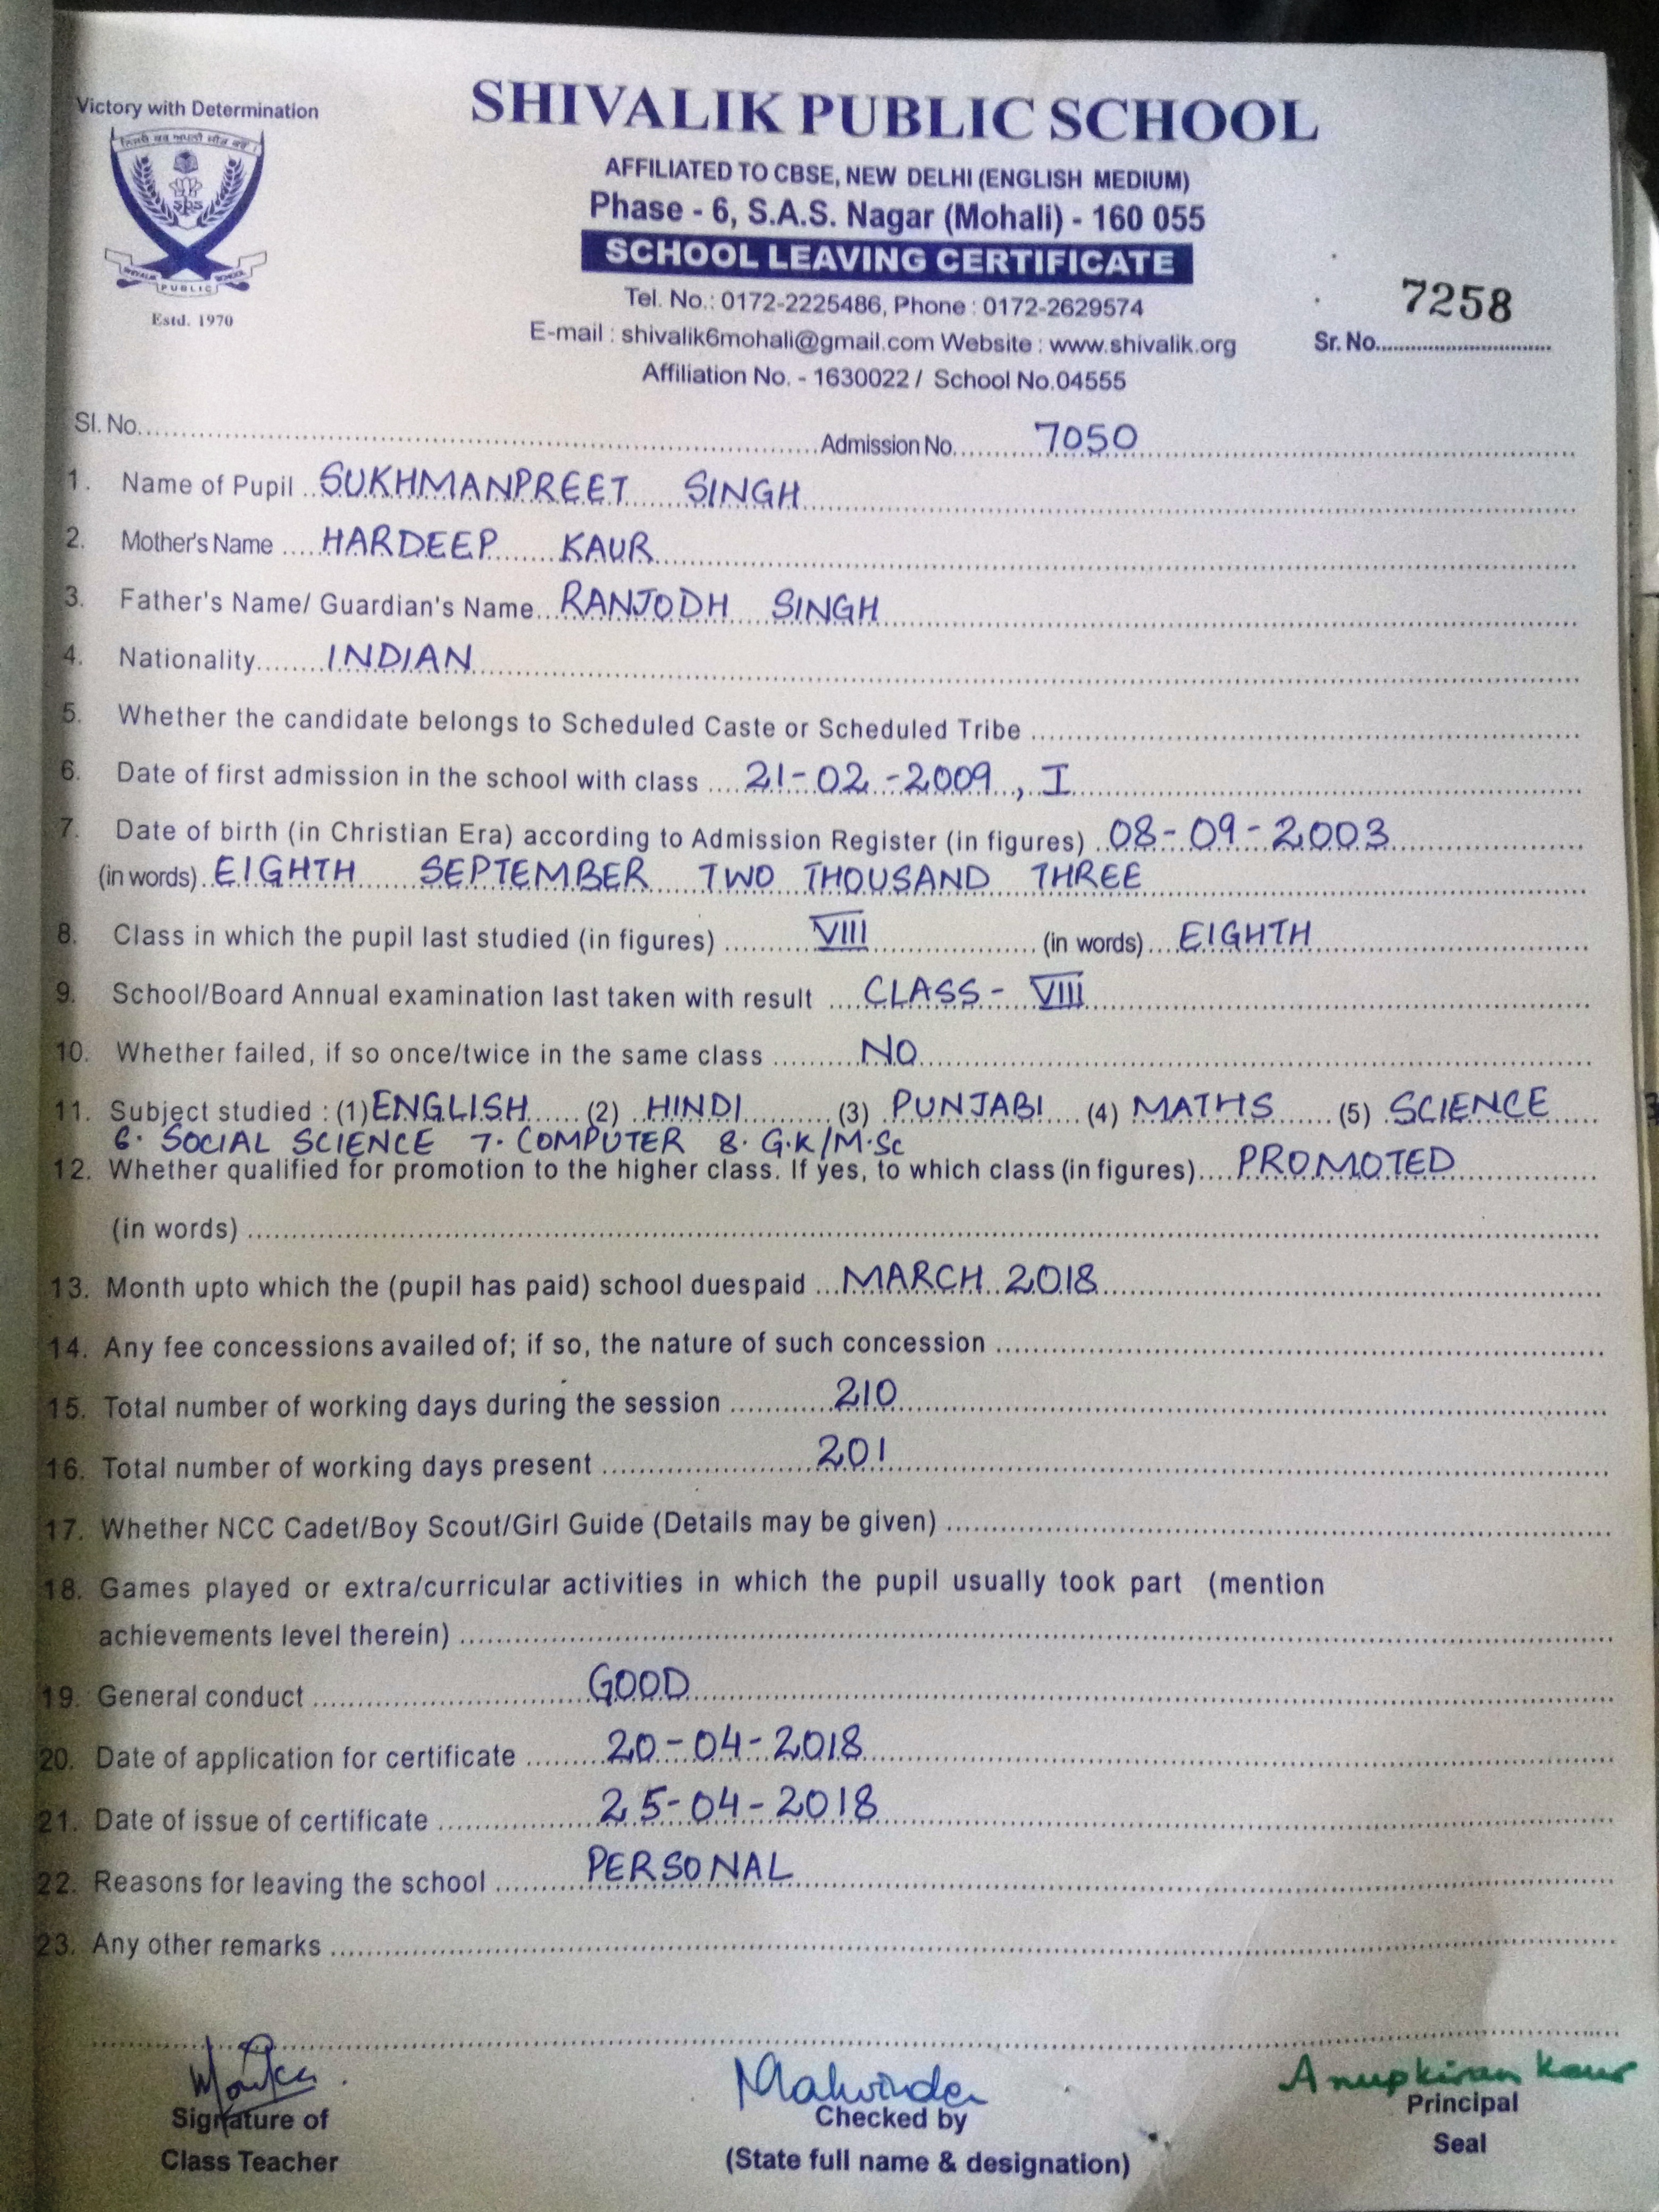 Victory with Determination
SHIVALIK PUBLIC SCHOOL
AFFILIATED TO CBSE, NEW DELHI (ENGLISH MEDIUM)
Phase - 6, S.A.S. Nagar (Mohali) - 160 055
SCHOOL LEAVING CERTIFICATE
SPS
SHIVALIK PUBLIC SCHOOL
Estd. 1970
Tel. No.: 0172-2225486, Phone : 0172-2629574
E-mail : shivalik6mohali@gmail.com Website : www.shivalik.org
Affiliation No. - 1630022 / School No.04555
7258
Sr. No.
Sl. No. Admission No. 7050
1. Name of Pupil SUKHMANPREET SINGH
2. Mother's Name HARDEEP KAUR
3. Father's Name/ Guardian's Name RANJODH SINGH
4. Nationality INDIAN
5. Whether the candidate belongs to Scheduled Caste or Scheduled Tribe
6. Date of first admission in the school with class 21-02-2009, I
7. Date of birth (in Christian Era) according to Admission Register (in figures) 08-09-2003
(in words) EIGHTH SEPTEMBER TWO THOUSAND THREE
8. Class in which the pupil last studied (in figures) VIII (in words) EIGHTH
9. School/Board Annual examination last taken with result CLASS - VIII
10. Whether failed, if so once/twice in the same class NO
11. Subject studied : (1) ENGLISH (2) HINDI (3) PUNJABI (4) MATHS (5) SCIENCE
6. SOCIAL SCIENCE 7. COMPUTER 8. G.K/M.Sc
12. Whether qualified for promotion to the higher class. If yes, to which class (in figures) PROMOTED
(in words)
13. Month upto which the (pupil has paid) school duespaid MARCH 2018
14. Any fee concessions availed of; if so, the nature of such concession
15. Total number of working days during the session 210
16. Total number of working days present 201
17. Whether NCC Cadet/Boy Scout/Girl Guide (Details may be given)
18. Games played or extra/curricular activities in which the pupil usually took part (mention
achievements level therein)
19. General conduct GOOD
20. Date of application for certificate 20-04-2018
21. Date of issue of certificate 25-04-2018
22. Reasons for leaving the school PERSONAL
23. Any other remarks
Anupkiran Kaur
Signature of
Class Teacher
Checked by
(State full name & designation)
Principal
Seal